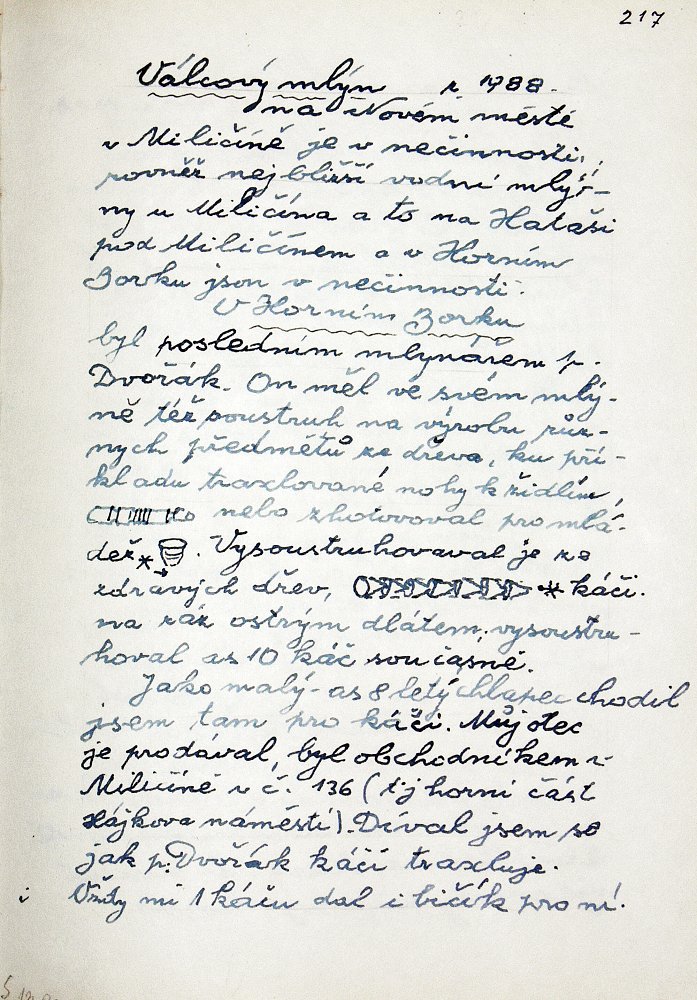 217
Válcový mlýn r. 1988.
na Novém městě
v Miličíně je v nečinnosti,
rovněž nejbližší vodní mlý-
ny u Miličína a to na Halaši
pod Miličínem a v Horním
Borku jsou v nečinnosti.
V Horním Borku
byl posledním mlynářem p.
Dvořák. On měl ve svém mlý-
ně též soustruh na výrobu růz-
ných předmětů ze dřeva, ku pří-
kladu traxlované nohy k židlím,
nebo zhotovoval pro mlá-
dež * . Vysoustruhovaval je ze
zdravých dřev, * káči.
na ráz ostrým dlátem, vysoustru-
hoval as 10 káč současně.
Jako malý - as 8 letý chlapec chodil
jsem tam pro káči. Můj otec
je prodával, byl obchodníkem v
Miličíně v č. 136 (tj horní část
Hájkova náměstí). Díval jsem se
jak p. Dvořák káči traxluje.
Vždy mi 1 káču dal i bičík pro ni.